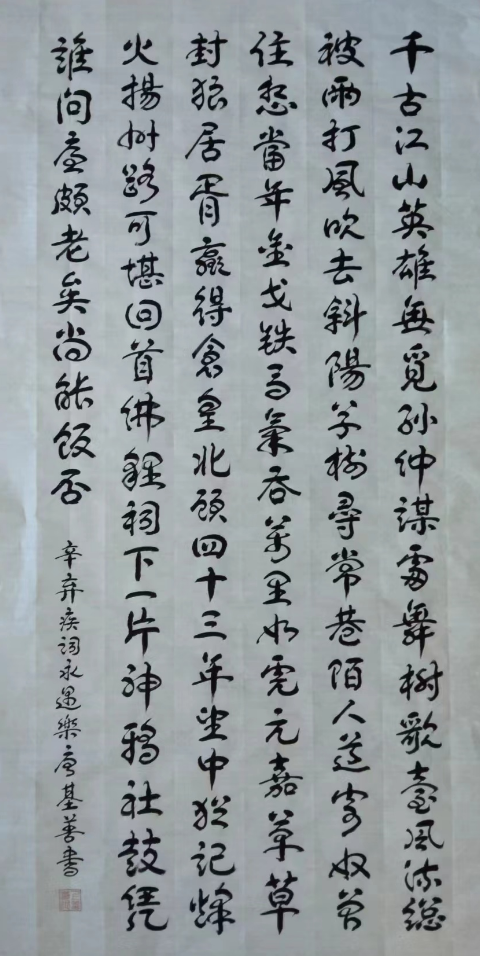 千古江山英雄無覓孙仲謀處舞榭歌臺風流總
被雨打風吹去斜陽草樹尋常巷陌人道寄奴曾
住想當年金戈鉄馬氣吞萬里如虎元嘉草草
封狼居胥贏得倉皇北顧四十三年望中猶記烽
火揚州路可堪回首佛貍祠下一片神鴉社鼓凭
誰问廉頗老矣尚能飯否
辛弃疾詞永遇樂唐基善書